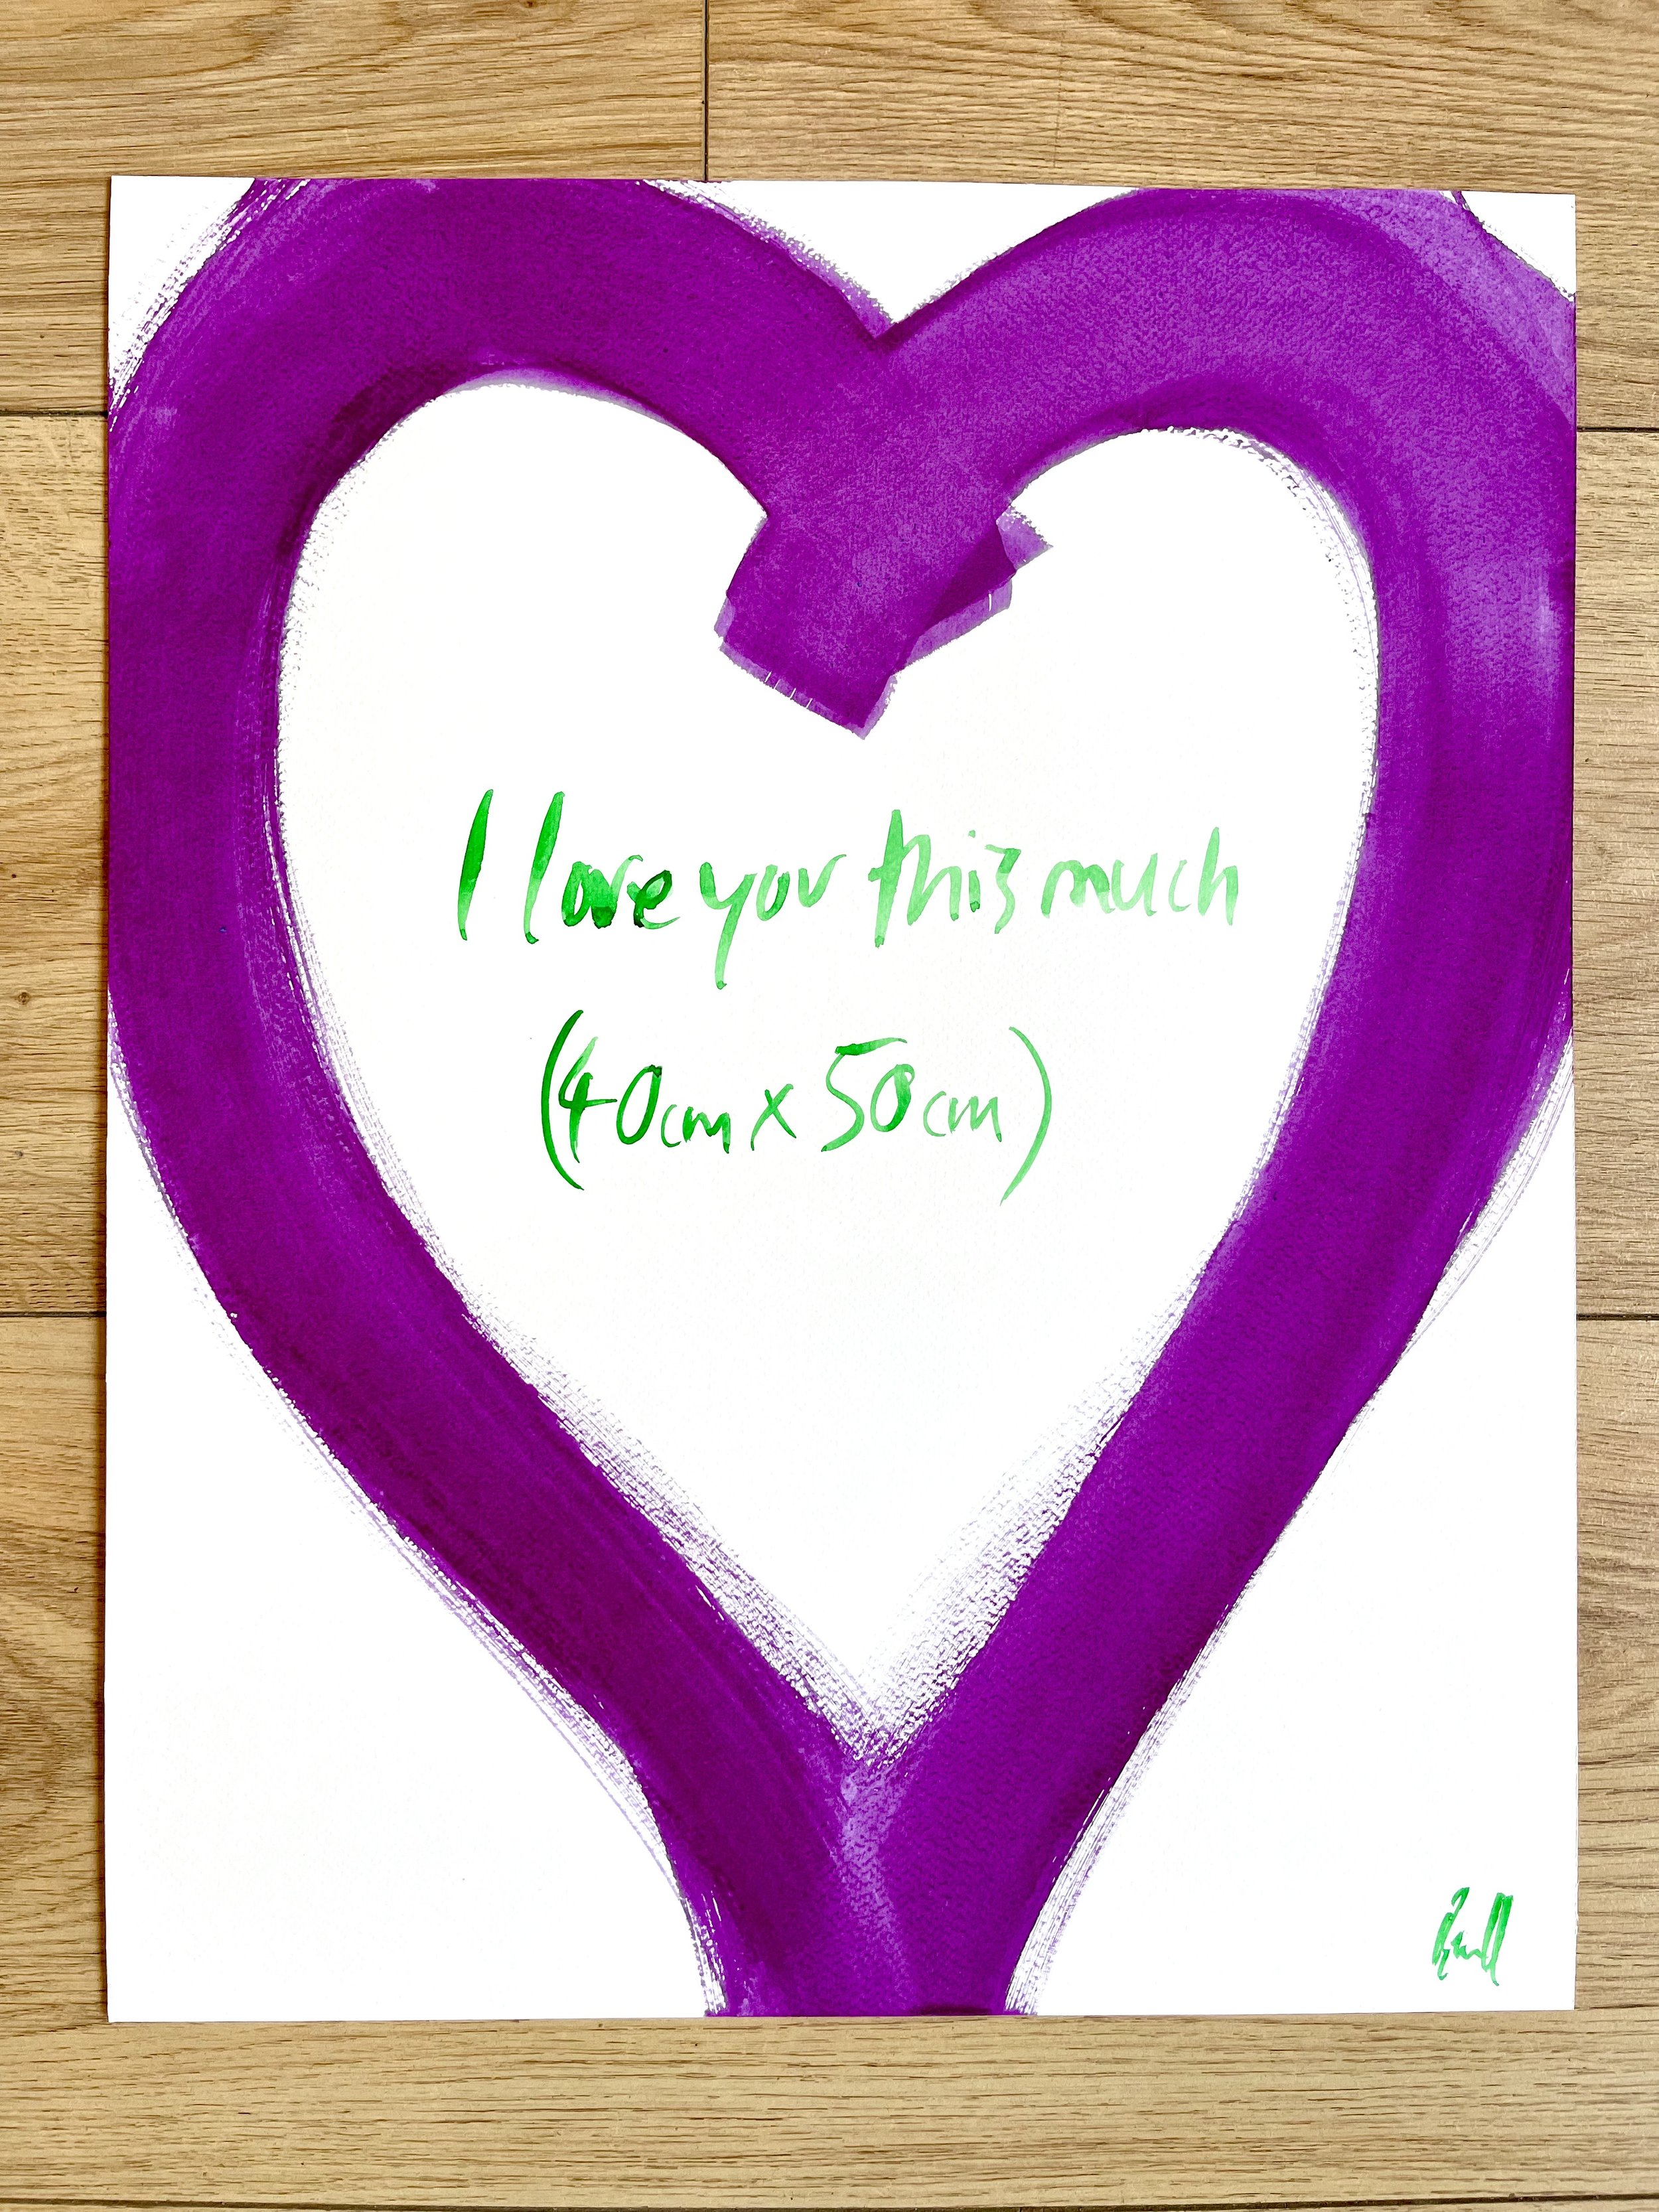 I love you this much
(40cm x 50cm)